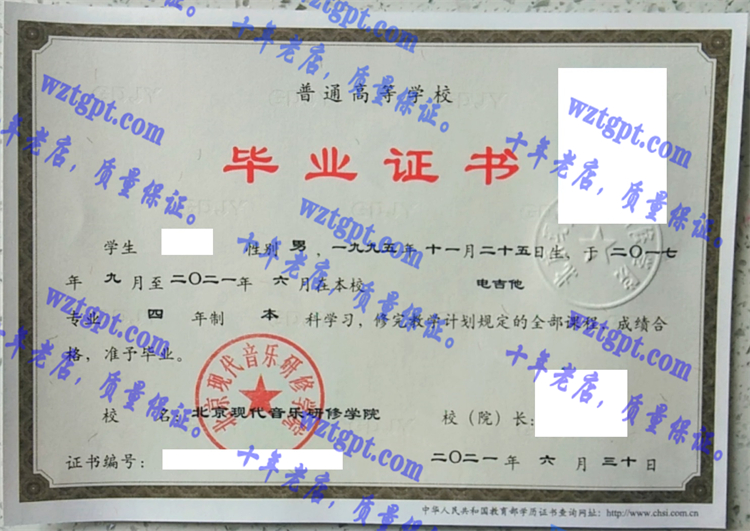 普通高等学校
毕业证书
学生 性别 男，一九九五年 十一月二十五日生，于 二〇一七
年 九 月至 二〇二一年 六 月在本校 电吉他
专业 四 年制 本 科学习，修完教学计划规定的全部课程，成绩合
格，准予毕业。
校 名：北京现代音乐研修学院 校（院）长：
证书编号：
二〇二一年 六 月 三十日
中华人民共和国教育部学历证书查询网址：http://www.chsi.com.cn
北京现代音乐研修学院
wztgpt.com
十年老店，质量保证。
wztgpt.com
十年老店，质量保证。
wztgpt.com
十年老店，质量保证。
wztgpt.com
十年老店，质量保证。
wztgpt.com
十年老店，质量保证。
wztgpt.com
十年老店，质量保证。
wztgpt.com
十年老店，质量保证。
wztgpt.com
十年老店，质量保证。
wztgpt.com
十年老店，质量保证。